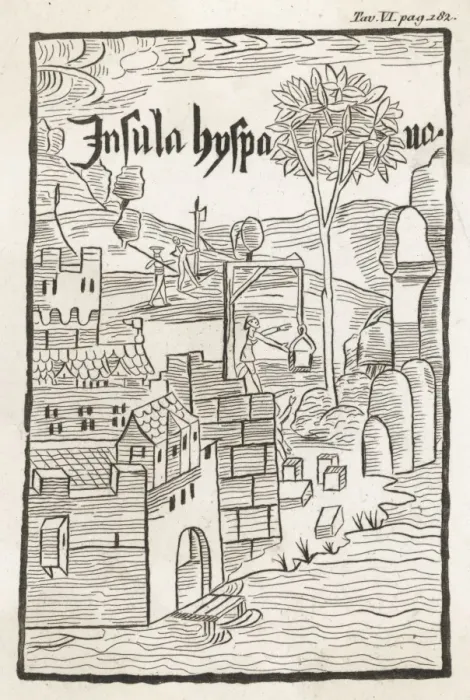 Tav. VI. pag. 182.
Inſula hyſpa na.